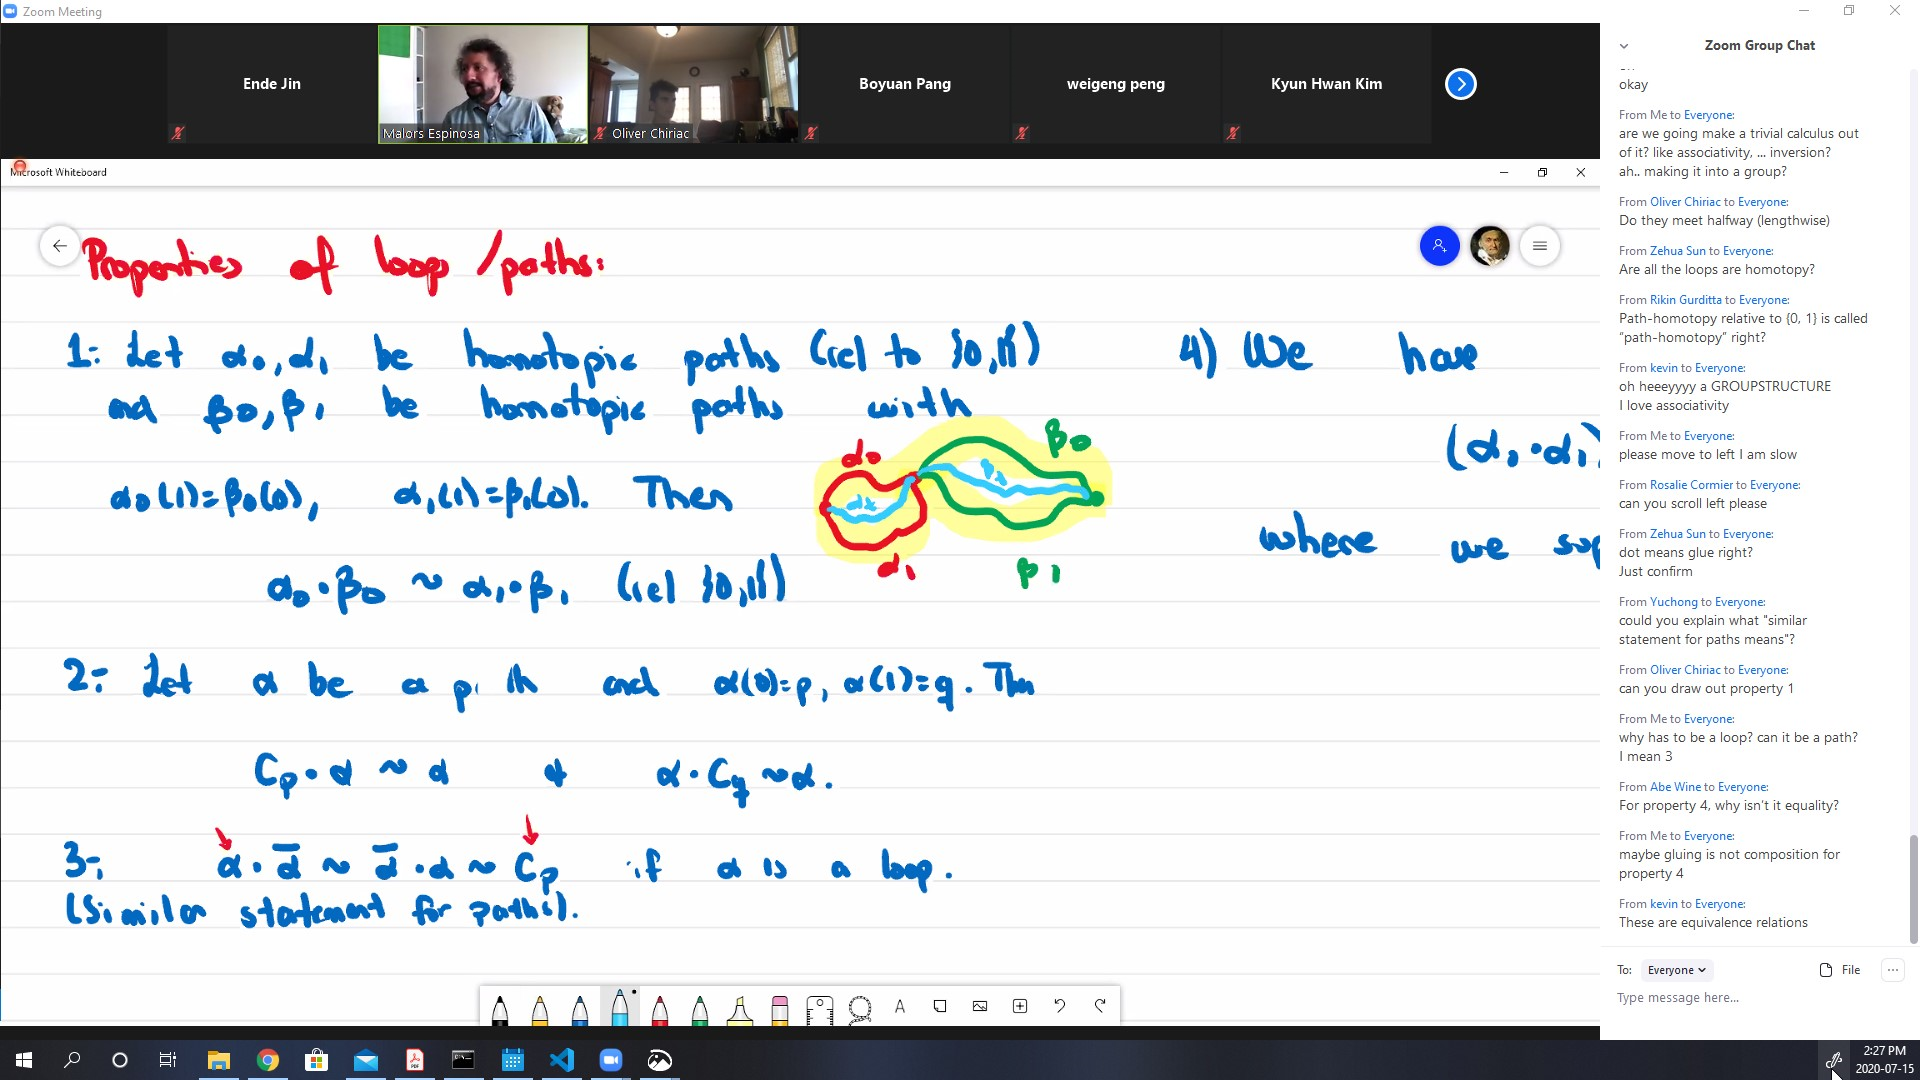 Zoom Meeting
Ende Jin
Malors Espinosa
Oliver Chiriac
Boyuan Pang
weigeng peng
Kyun Hwan Kim
Microsoft Whiteboard
Properties of loop /paths:
1: Let α₀, α₁ be homotopic paths (rel to {0,1})
and β₀, β₁ be homotopic paths with
α₀(1)=β₀(0), α₁(1)=β₁(0). Then
α₀·β₀ ~ α₁·β₁ (rel {0,1})
α₀
β₀
α₁
β₁
2: Let α be a p th and α(0)=p, α(1)=q. Then
Cp·α ~ α & α·Cq ~ α.
3: α·ᾱ ~ ᾱ·α ~ Cp if α is a loop.
(Similar statement for paths).
4) We have
(α₀·α₁)
where we sup
Zoom Group Chat
okay
From Me to Everyone:
are we going make a trivial calculus out
of it? like associativity, ... inversion?
ah.. making it into a group?
From Oliver Chiriac to Everyone:
Do they meet halfway (lengthwise)
From Zehua Sun to Everyone:
Are all the loops are homotopy?
From Rikin Gurditta to Everyone:
Path-homotopy relative to {0, 1} is called
“path-homotopy” right?
From kevin to Everyone:
oh heeeyyyy a GROUPSTRUCTURE
I love associativity
From Me to Everyone:
please move to left I am slow
From Rosalie Cormier to Everyone:
can you scroll left please
From Zehua Sun to Everyone:
dot means glue right?
Just confirm
From Yuchong to Everyone:
could you explain what "similar
statement for paths means"?
From Oliver Chiriac to Everyone:
can you draw out property 1
From Me to Everyone:
why has to be a loop? can it be a path?
I mean 3
From Abe Wine to Everyone:
For property 4, why isn’t it equality?
From Me to Everyone:
maybe gluing is not composition for
property 4
From kevin to Everyone:
These are equivalence relations
To: Everyone
File
Type message here...
2:27 PM
2020-07-15